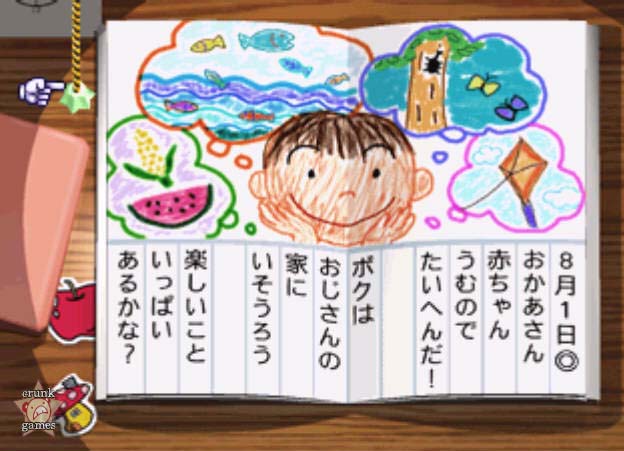 8月1日◎
おかあさん
赤ちゃん
うむので
たいへんだ！
ボクは
おじさんの
家に
いそうろう
楽しいこと
いっぱい
あるかな？
crunk
games